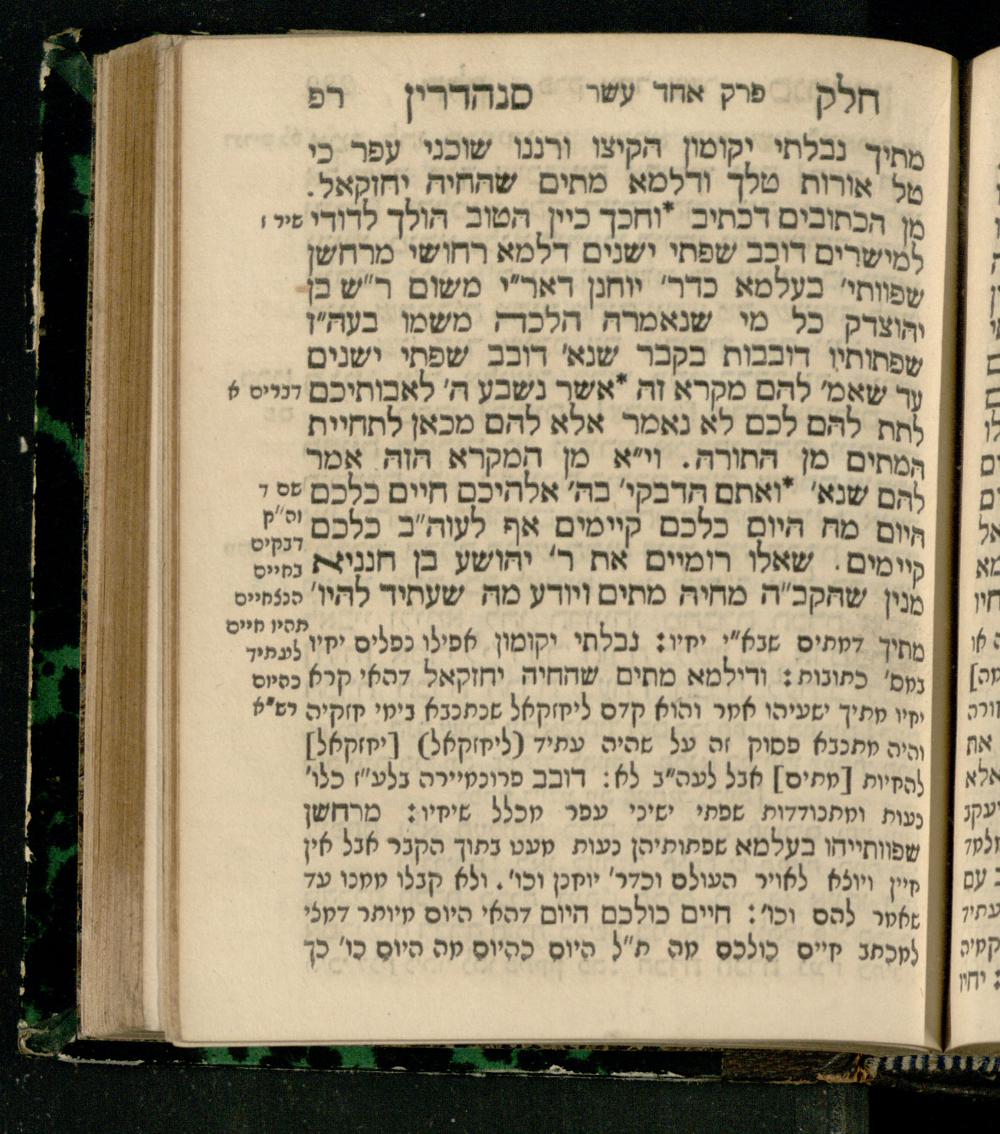 חלק פרק אחד עשר סנהדרין רפ
מתיך נבלתי יקומון הקיצו ורננו שוכני עפר כי
טל אורות טלך ודלמא מתים שהחיה יחזקאל.
מן הכתובים דכתיב *וחכך כיין הטוב הולך לדודי
למישרים דובב שפתי ישנים דלמא רחושי מרחשן
שפוותי' בעלמא כדר' יוחנן דאר"י משום ר"ש בן
יהוצדק כל מי שנאמרה הלכה משמו בעה"ז
שפתותיו דובבות בקבר שנא' דובב שפתי ישנים
עד שאמ' להם מקרא זה *אשר נשבע ה' לאבותיכם
לתת להם לכם לא נאמר אלא להם מכאן לתחיית
המתים מן התורה. וי"א מן המקרא הזה אמר
להם שנא' *ואתם הדבקי' בה' אלהיכם חיים כלכם
היום מה היום כלכם קיימים אף לעוה"ב כלכם
קיימים. שאלו רומיים את ר' יהושע בן חנניא
מנין שהקב"ה מחיה מתים ויודע מה שעתיד להיו'
שיר ז
דברים א
שם ד
וס"ק
דבקים
בחיים
הנצחיים
תהיו חיים
לעתיד
כהיום
רש"א
מתיך דמתים שבא"י יחיו: נבלתי יקומון אפילו נפלים יחיו
במס' כתובות: ודילמא מתים שהחיה יחזקאל דהאי קרא
יחיו מתיך ישעיהו אמר והוא קדם ליחזקאל שנתנבא בימי חזקיה
והיה מתנבא פסוק זה על שהיה עתיד (ליחזקאל) [יחזקאל]
להחיות [מתים] אבל לעה"ב לא: דובב פרונמיירה בלע"ז כלו'
נעות ומתנודדות שפתי ישיני עפר מכלל שיחיו: מרחשן
שפוותייהו בעלמא שפתותיהן נעות מעט בתוך הקבר אבל אין
חיין ויוצא לאויר העולם וכדר' יוחנן וכו'. ולא קבלו ממנו עד
שאמר להם וכו': חיים כולכם היום דהאי היום מיותר דמצי
למכתב חיים כולכם מה ת"ל היום כהיום מה היום כו' כך